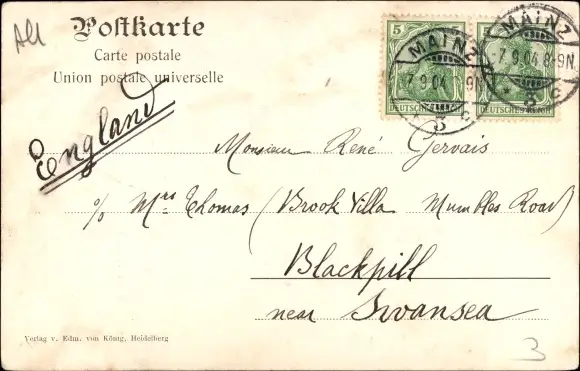 All
Postkarte
Carte postale
Union postale universelle
England
5
DEUTSCHES REICH
MAINZ
7.9.04.
9N
3
c
5
DEUTSCHES REICH
MAINZ
7.9.04.8-9N.
* 3 c
Monsieur René Gervais
℅ Mrs Thomas (Brook Villa Mumbles Road)
Blackpill
near Swansea
Verlag v. Edm. von König, Heidelberg
3